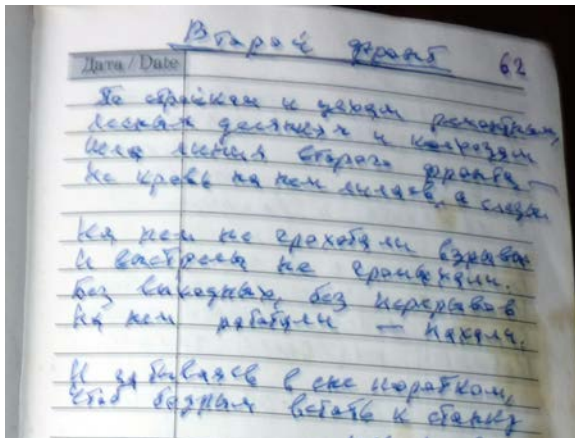 Второй фронт
62
Дата / Date
По стройкам и цехам ремонтным,
Лесным делянкам и колхозам
Шла линия второго фронта —
Не кровь на нем лилась, а слезы.
На нем не грохотали взрывы
И выстрелы не громыхали.
Без выходных, без перерывов
На нем работали — пахали.
И забываясь в сне коротком,
Чтоб бодрым встать к станку